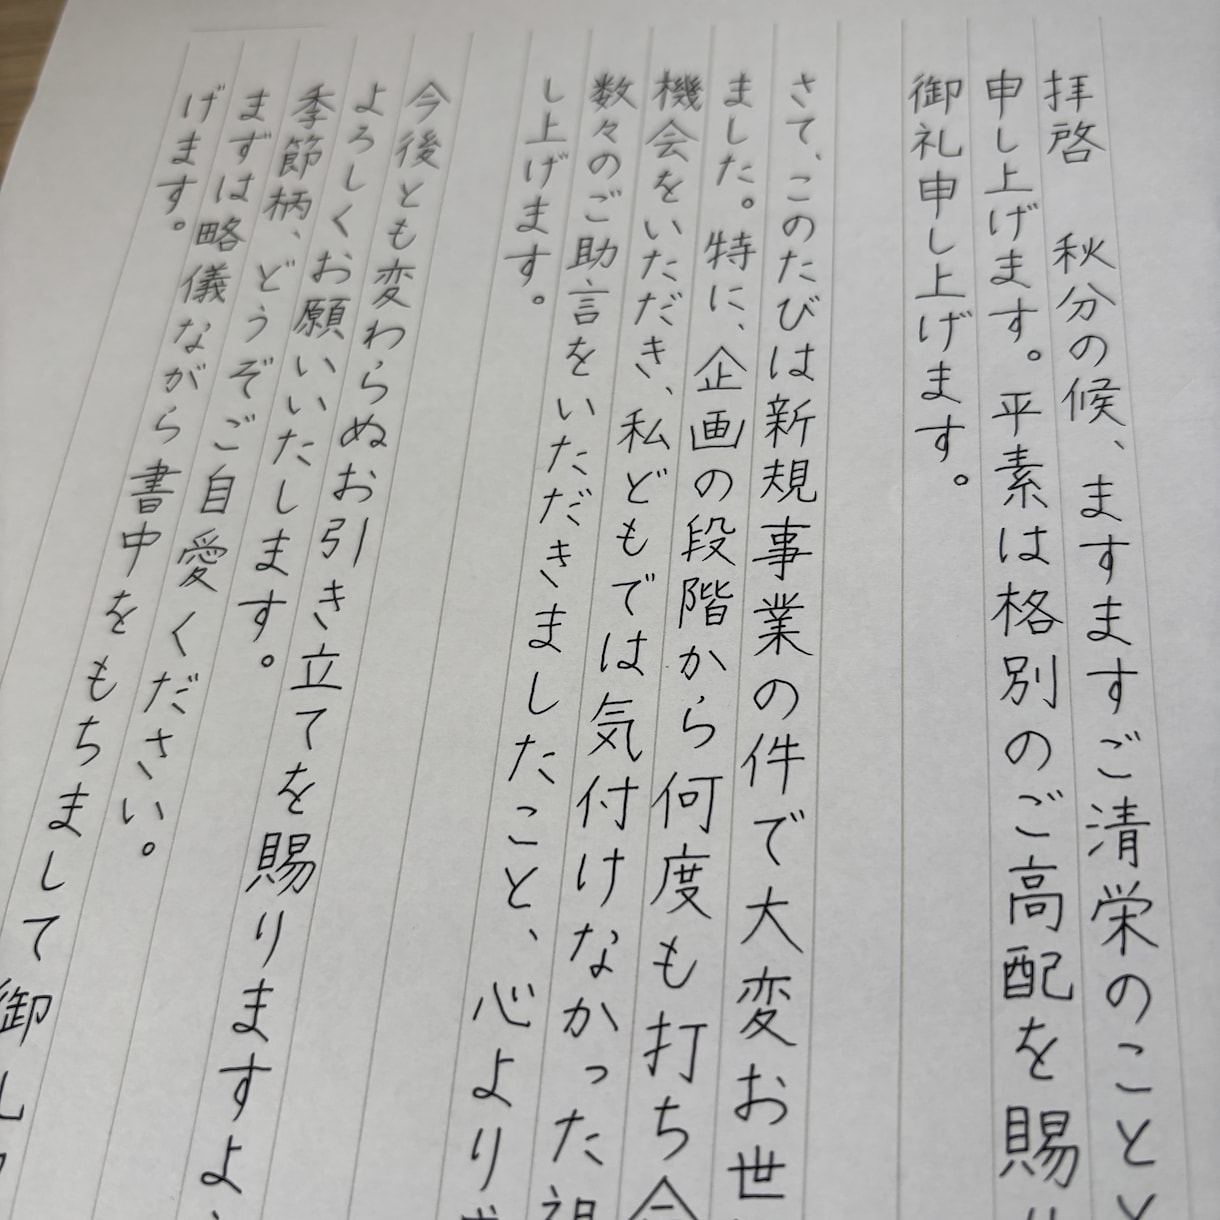 拝啓　秋分の候、ますますご清栄のことと
申し上げます。平素は格別のご高配を賜り
御礼申し上げます。
さて、このたびは新規事業の件で大変お世
ました。特に、企画の段階から何度も打ち
機会をいただき、私どもでは気付けなかった
数々のご助言をいただきましたこと、心より
し上げます。
今後とも変わらぬお引き立てを賜りますよ
よろしくお願いいたします。
季節柄、どうぞご自愛ください。
まずは略儀ながら書中をもちまして御礼
げます。